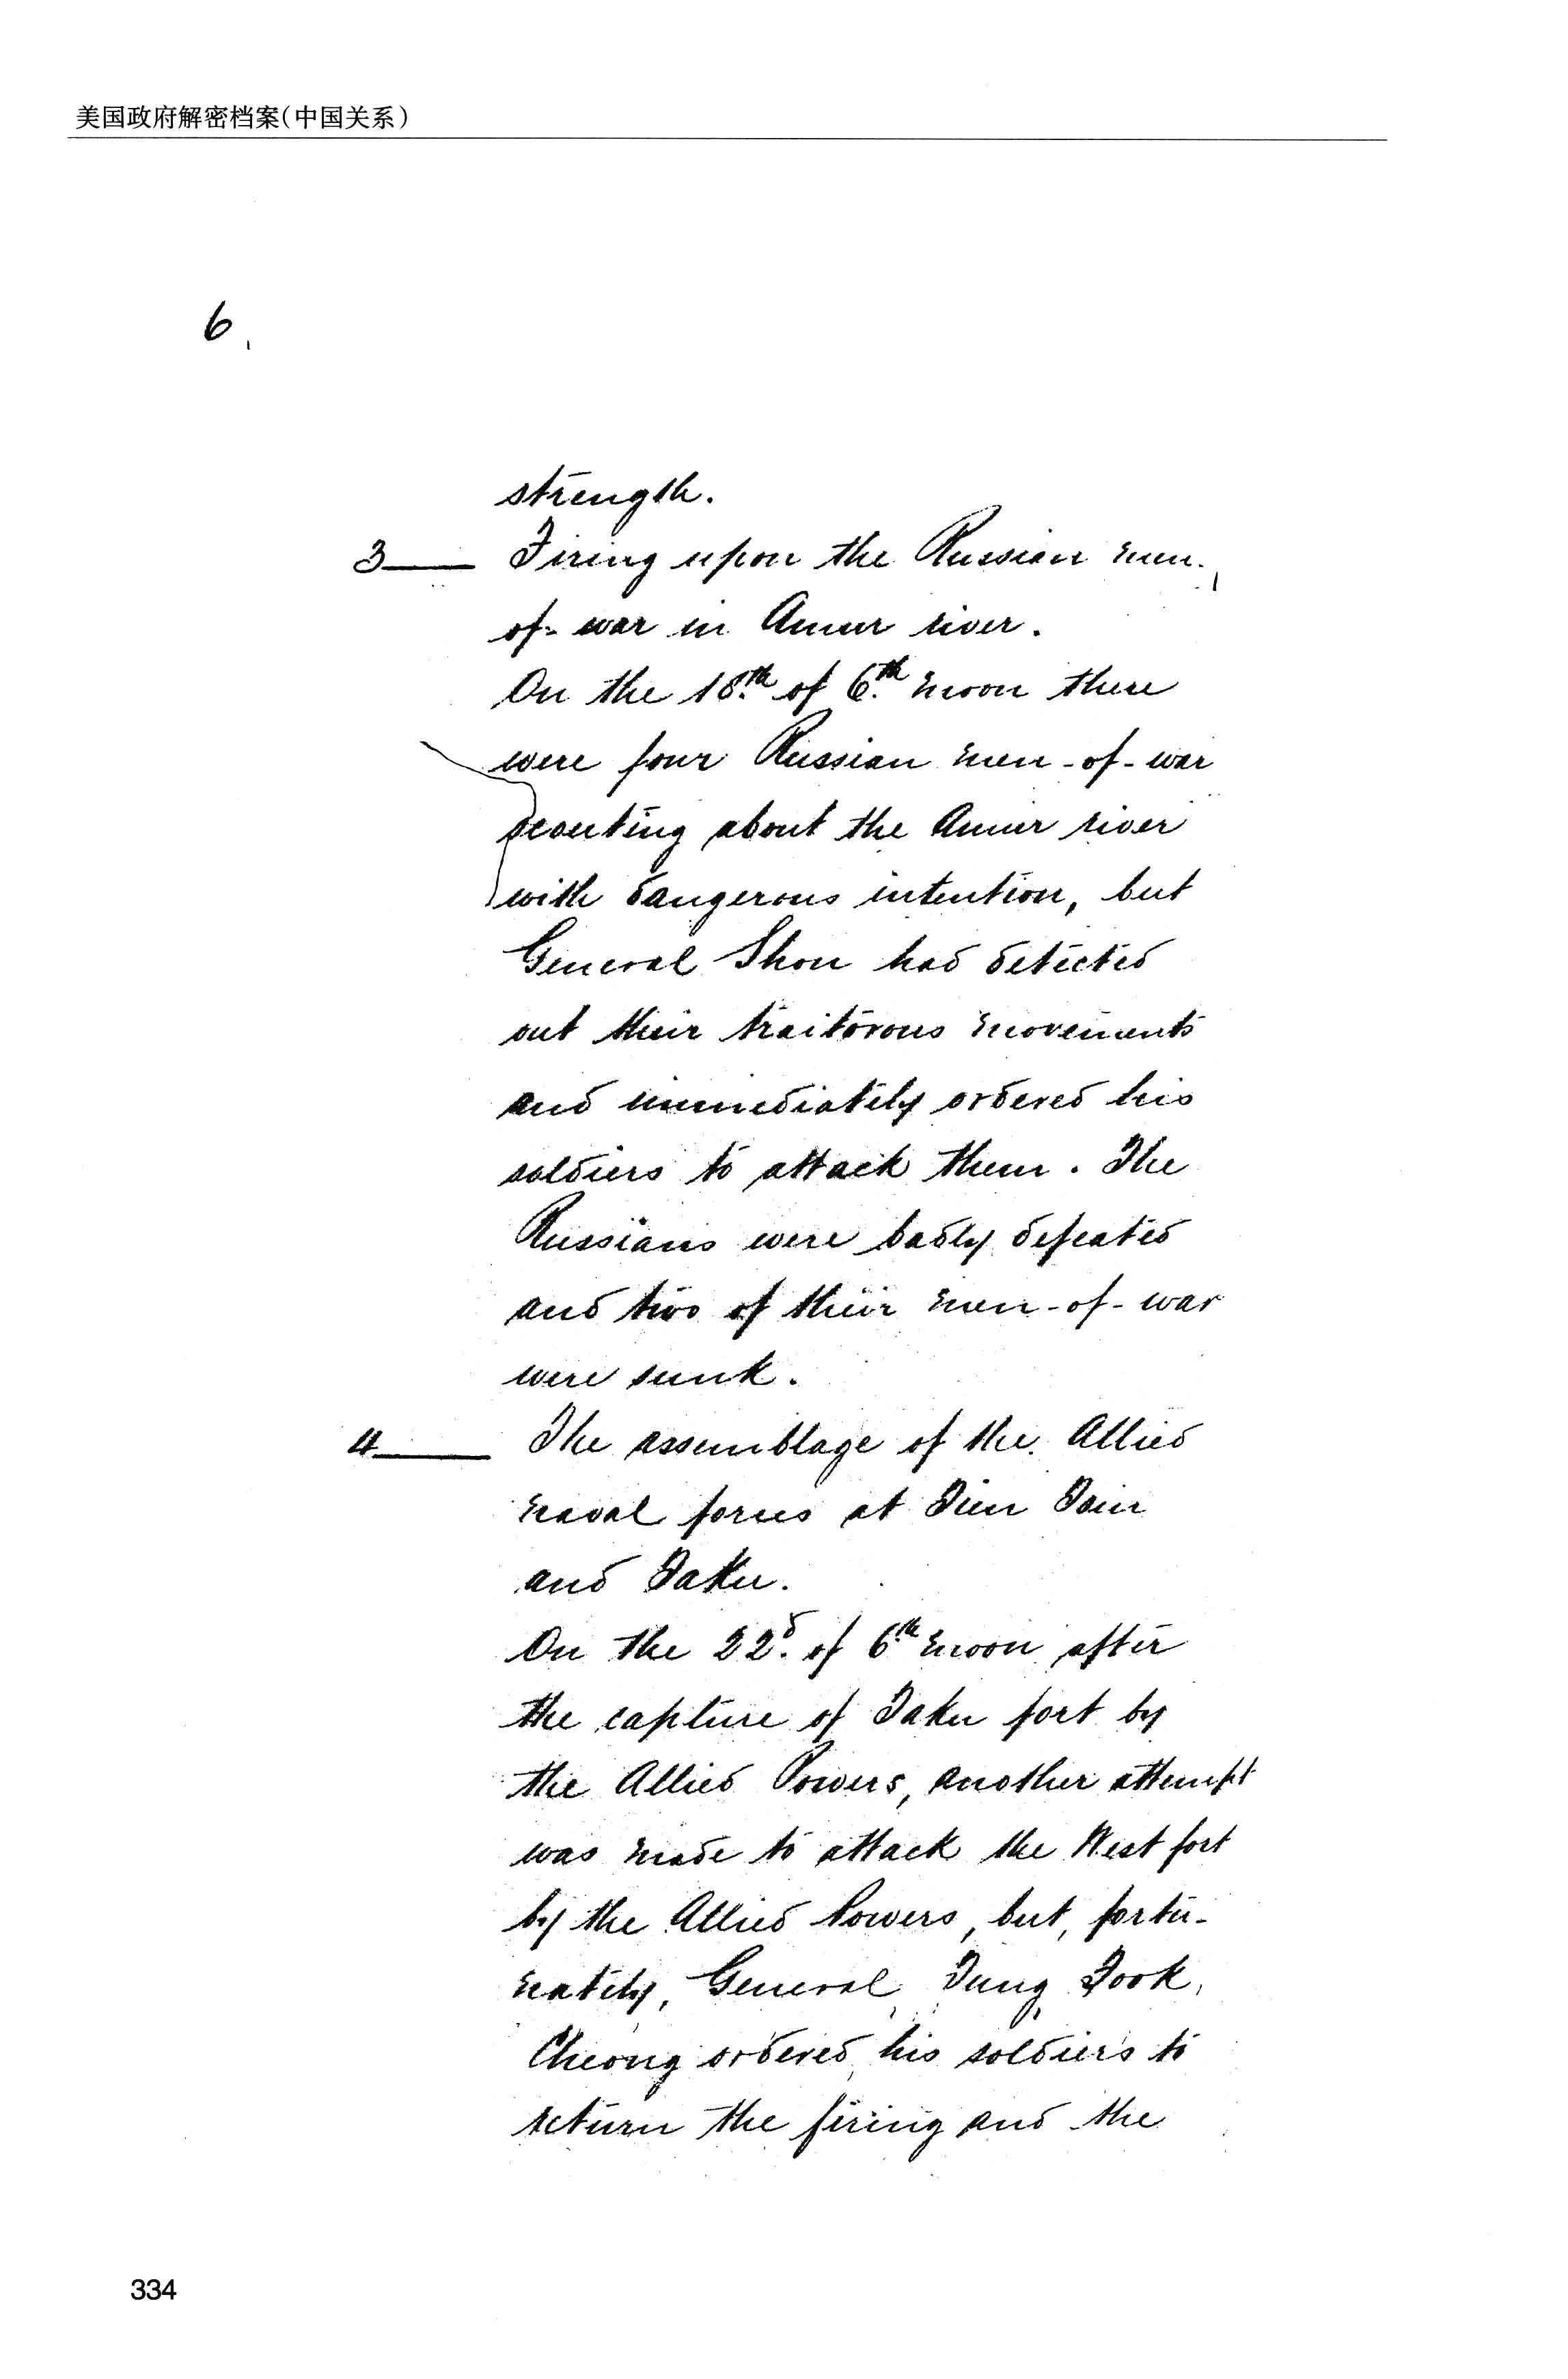 美国政府解密档案(中国关系)
6.
strength.
3— Firing upon the Russian men-
of-war in Amur river.
On the 18th of 6th moon there
were four Russian men-of-war
scouting about the Amur river
with dangerous intention, but
General Shou had detected
out their traitorous movements
and immediately ordered his
soldiers to attack them. The
Russians were badly defeated
and two of their men-of-war
were sunk.
4— The assemblage of the Allied
naval forces at Tien Tsin
and Taku.
On the 22d of 6th moon after
the capture of Taku fort by
the Allied Powers, another attempt
was made to attack the West fort
by the Allied Powers, but, fortu-
nately, General Tung Fook
Cheong ordered his soldiers to
return the firing and the
334